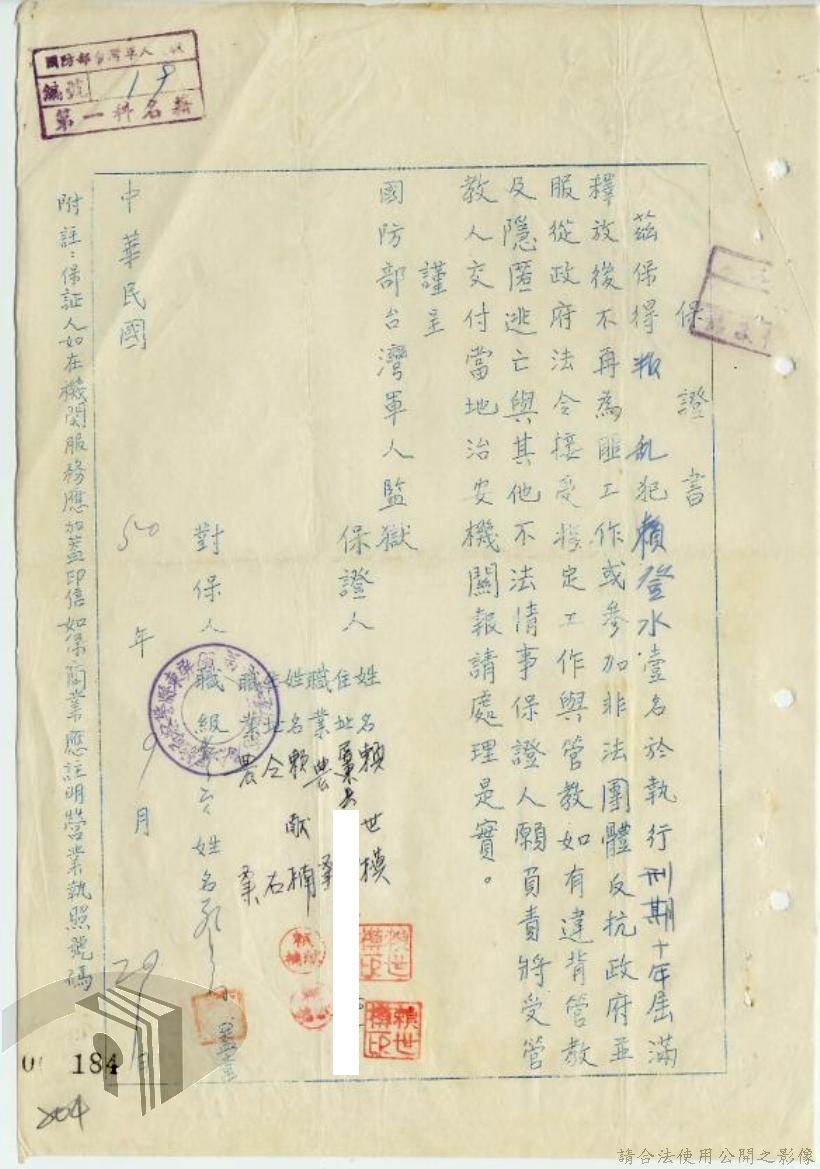 保證書
茲保得叛乱犯賴登水壹名於執行刑期十年屆滿
釋放後不再為匪工作或參加非法團體反抗政府並
服從政府法令接受指定工作與管教如有違背管教
及隱匿逃亡與其他不法情事保證人願負責將受管
教人交付當地治安機關報請處理是實。
謹呈
國防部台灣軍人監獄
保證人
姓名賴世模
住址
職業農
姓名賴献楠
住址仝右
職業農
對保人
職級 姓名
蓋章
中華民國50年9月29日
附註：保証人如在機関服務應加蓋印信如係商業應註明營業執照號碼
國防部台灣軍人
編號 19
第一科名籍
賴世模印
賴世模印
184
204
請合法使用公開之影像